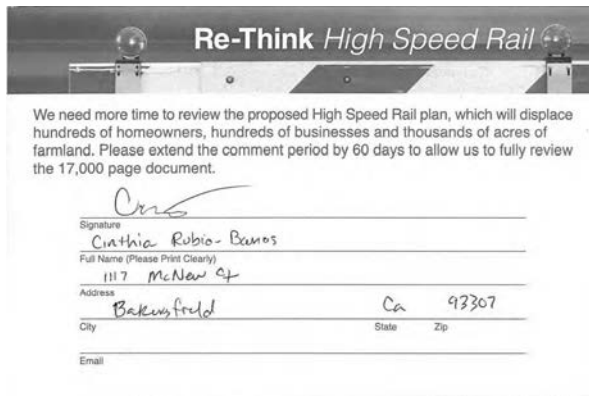 Re-Think High Speed Rail
We need more time to review the proposed High Speed Rail plan, which will displace
hundreds of homeowners, hundreds of businesses and thousands of acres of
farmland. Please extend the comment period by 60 days to allow us to fully review
the 17,000 page document.
Signature
Cinthia Rubio-
Full Name (Please Print Clearly)
1117 McNew Ct
Address
Bakersfield Ca 93307
City State Zip
Email